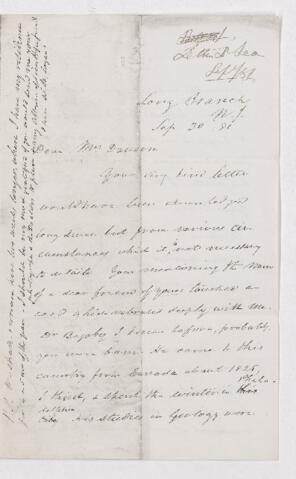 Long Branch
N.J.
Sep 20 81
Dear Mrs Dawson
Your very kind letter
would have been acknowledged
long since but from various cir
cumstances which it is not necessary
to detail. Your mentioning the name
of a dear friend of yours touched a
cord which vibrates deeply with me.
Dr Bigsby I knew before, probably,
you were born. He came to this
country from Canada about 1825,
I think, & spent the winter in Phila-
delphia
His studies in Geology were
P.S. We shall remain here two weeks longer, where I have my residence